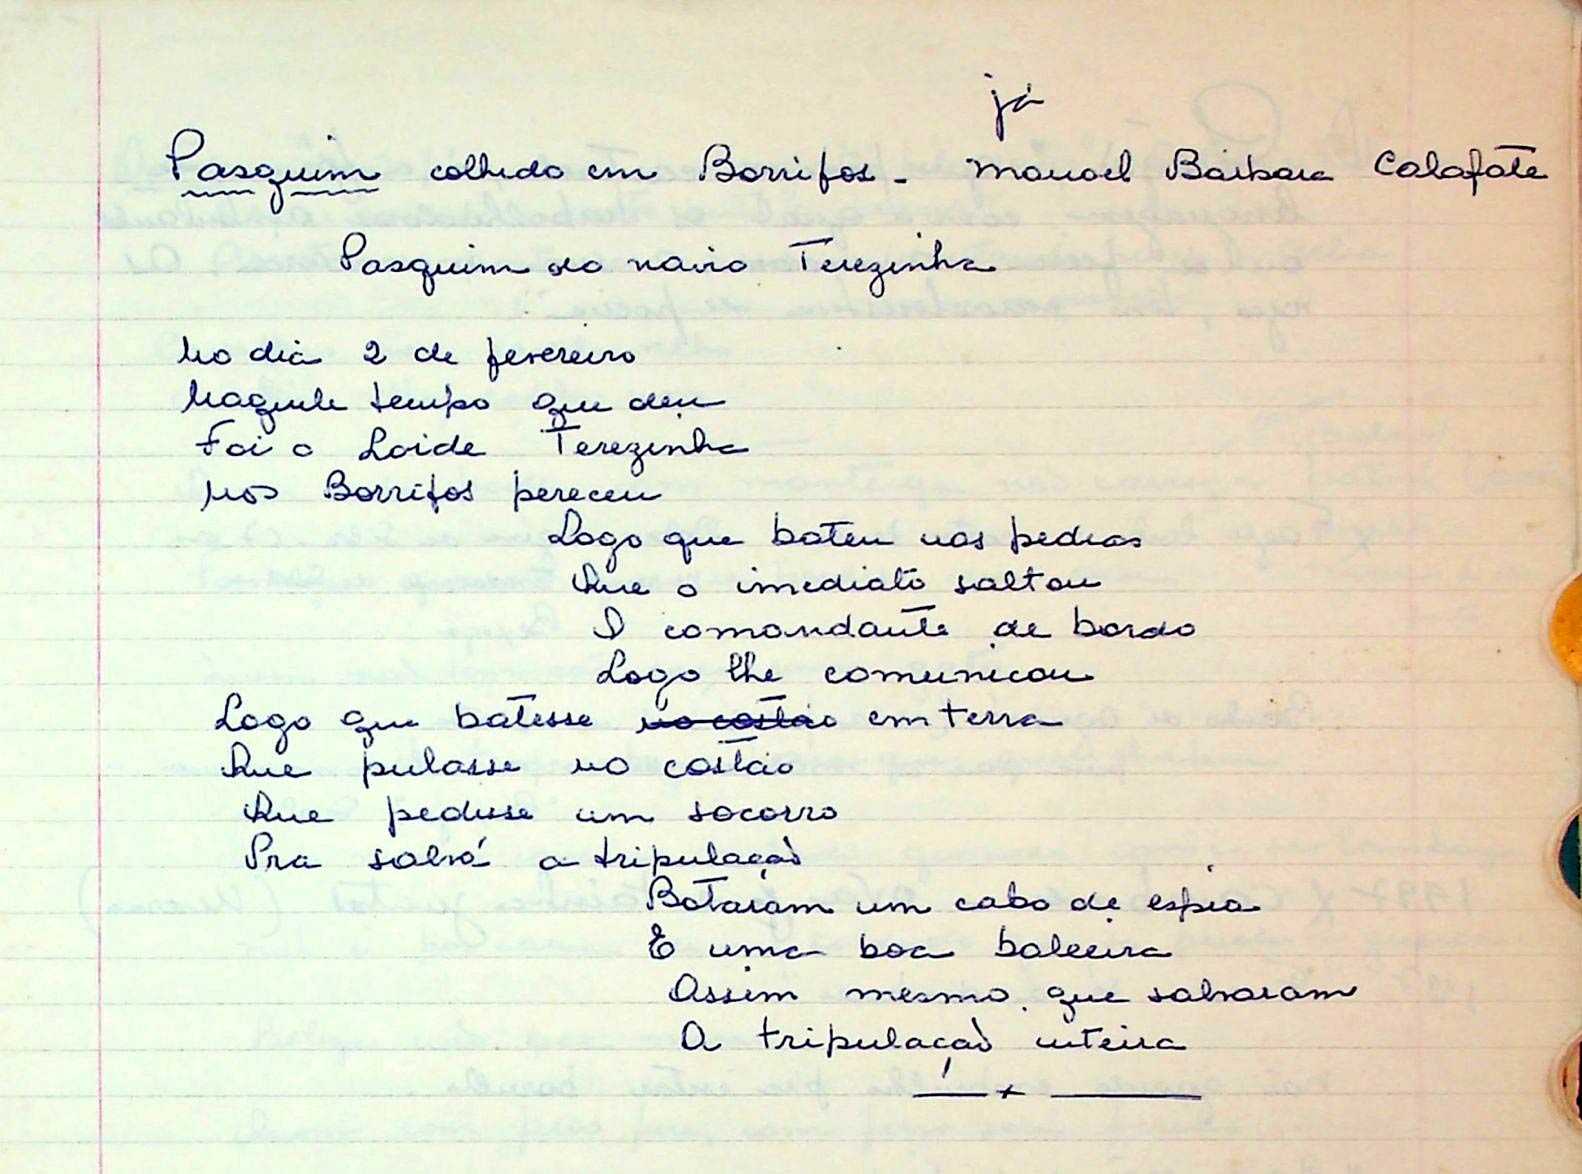 já
Pasquim colhido em Borrifos - Manoel Bárbara Calafate
Pasquim do navio Terezinha
No dia 2 de fevereiro
Naquele tempo que deu
Foi o Loide Terezinha
Nos Borrifos pereceu
Logo que bateu nas pedras
Que o imediato saltou
O comandante de bordo
Logo lhe comunicou
Logo que batesse no costão em terra
Que pulasse no costão
Que pedisse um socorro
Pra salvá a tripulação
Botaram um cabo de espia
E uma boa baleeira
Assim mesmo que salvaram
A tripulação inteira